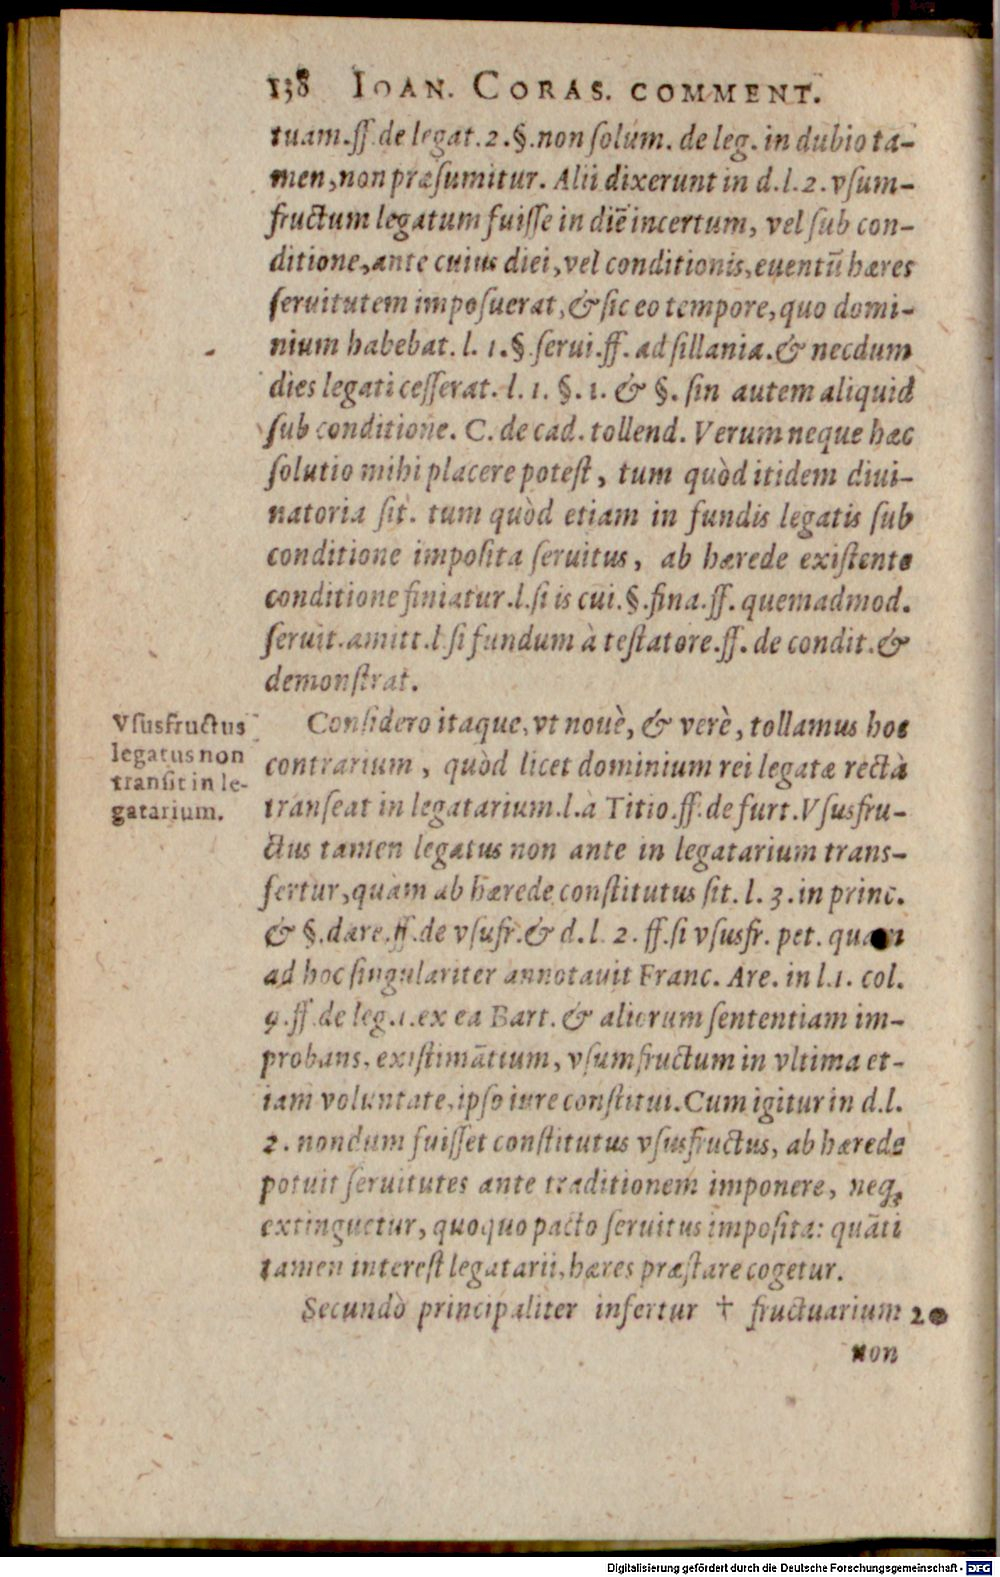 138 IOAN. CORAS. COMMENT.
tuam.ff.de legat.2.§.non ſolum. de leg. in dubio ta-
men, non præſumitur. Alii dixerunt in d.l.2. vſum-
fructum legatum fuiſſe in diē incertum, vel ſub con-
ditione, ante cuius diei, vel conditionis, euentū hæres
ſeruitutem impoſuerat, & ſic eo tempore, quo domi-
nium habebat. l. 1.§.ſerui.ff. ad ſillania.& necdum
dies legati ceſſerat. l. 1. §. 1. & §. ſin autem aliquid
ſub conditione. C. de cad. tollend. Verum neque hæc
ſolutio mihi placere poteſt, tum quòd itidem diui-
natoria ſit. tum quòd etiam in fundis legatis ſub
conditione impoſita ſeruitus, ab hærede exiſtente
conditione finiatur.l.ſi is cui.§.fina.ff. quemadmod.
ſeruit.amitt.l.ſi fundum à teſtatore.ff. de condit.&
demonſtrat.
Vſusfructus
legatus non
tranſit in le-
gatarium.
Conſidero itaque, vt nouè, & verè, tollamus hoc
contrarium, quòd licet dominium rei legatæ rectà
tranſeat in legatarium.l.à Titio.ff.de furt.Vſusfru-
ctus tamen legatus non ante in legatarium trans-
fertur, quàm ab hærede conſtitutus ſit. l. 3. in princ.
& §.dare.ff.de vſufr.& d.l. 2. ff.ſi vſusfr. pet. quam
ad hoc ſingulariter annotauit Franc. Are. in l.1. col.
9.ff.de leg.1.ex ea Bart.& aliorum ſententiam im-
probans, exiſtimātium, vſumfructum in vltima et-
iam voluntate, ipſo iure conſtitui. Cum igitur in d.l.
2. nondum fuiſſet conſtitutus vſusfructus, ab hærede
potuit ſeruitutes ante traditionem imponere, neq;
extinguetur, quoquo pacto ſeruitus impoſita: quāti
tamen intereſt legatarii, hæres præſtare cogetur.
Secundò principaliter infertur † fructuarium 20
non
Digitalisierung gefördert durch die Deutsche Forschungsgemeinschaft - DFG